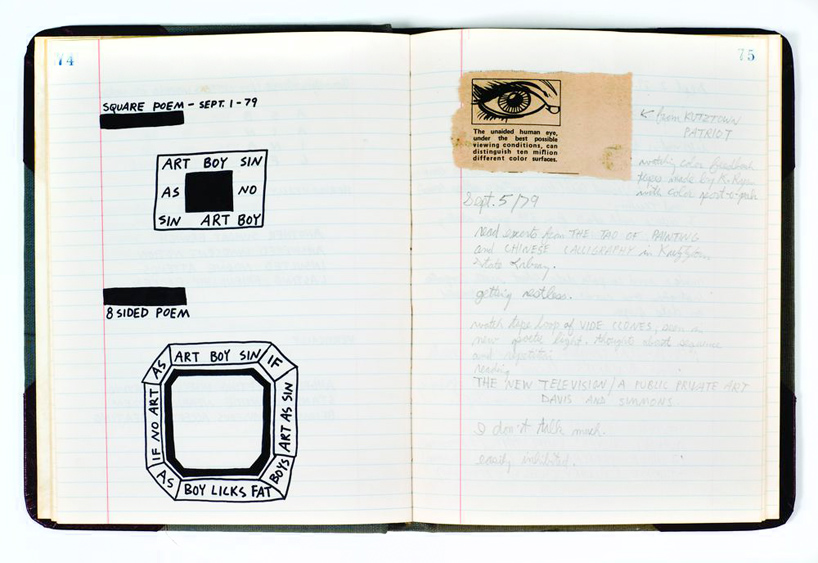 74
SQUARE POEM - SEPT. 1-79
ART BOY SIN
AS NO
SIN ART BOY
8 SIDED POEM
ART BOY SIN
IF
ART AS SIN
BOYS
BOY LICKS FAT
AS
IF NO ART
AS
75
The unaided human eye,
under the best possible
viewing conditions, can
distinguish ten million
different color surfaces.
from KUTZTOWN
PATRIOT
watching color feedback
tapes made by K.
with color
Sept. 5/79
read from THE TAO OF PAINTING
and CHINESE CALLIGRAPHY in Kutztown
State Library.
getting restless.
watch tape loop of VIDE CLONES, seen a
new light. thoughts about sequence
and
reading
THE NEW TELEVISION / A PUBLIC PRIVATE ART
DAVIS AND SIMMONS
I don't talk much.
easily inhibited.